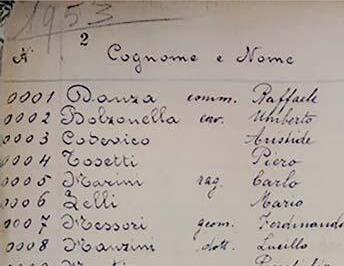 1953
2
N. Cognome e Nome
0001 Danza comm. Raffaele
0002 Bolzonella cav. Umberto
0003 Codevico Aristide
0004 Tosetti Piero
0005 Marini rag. Carlo
0006 Zelli Mario
0007 Messori geom. Ferdinando
0008 Manzini dott. Lucillo